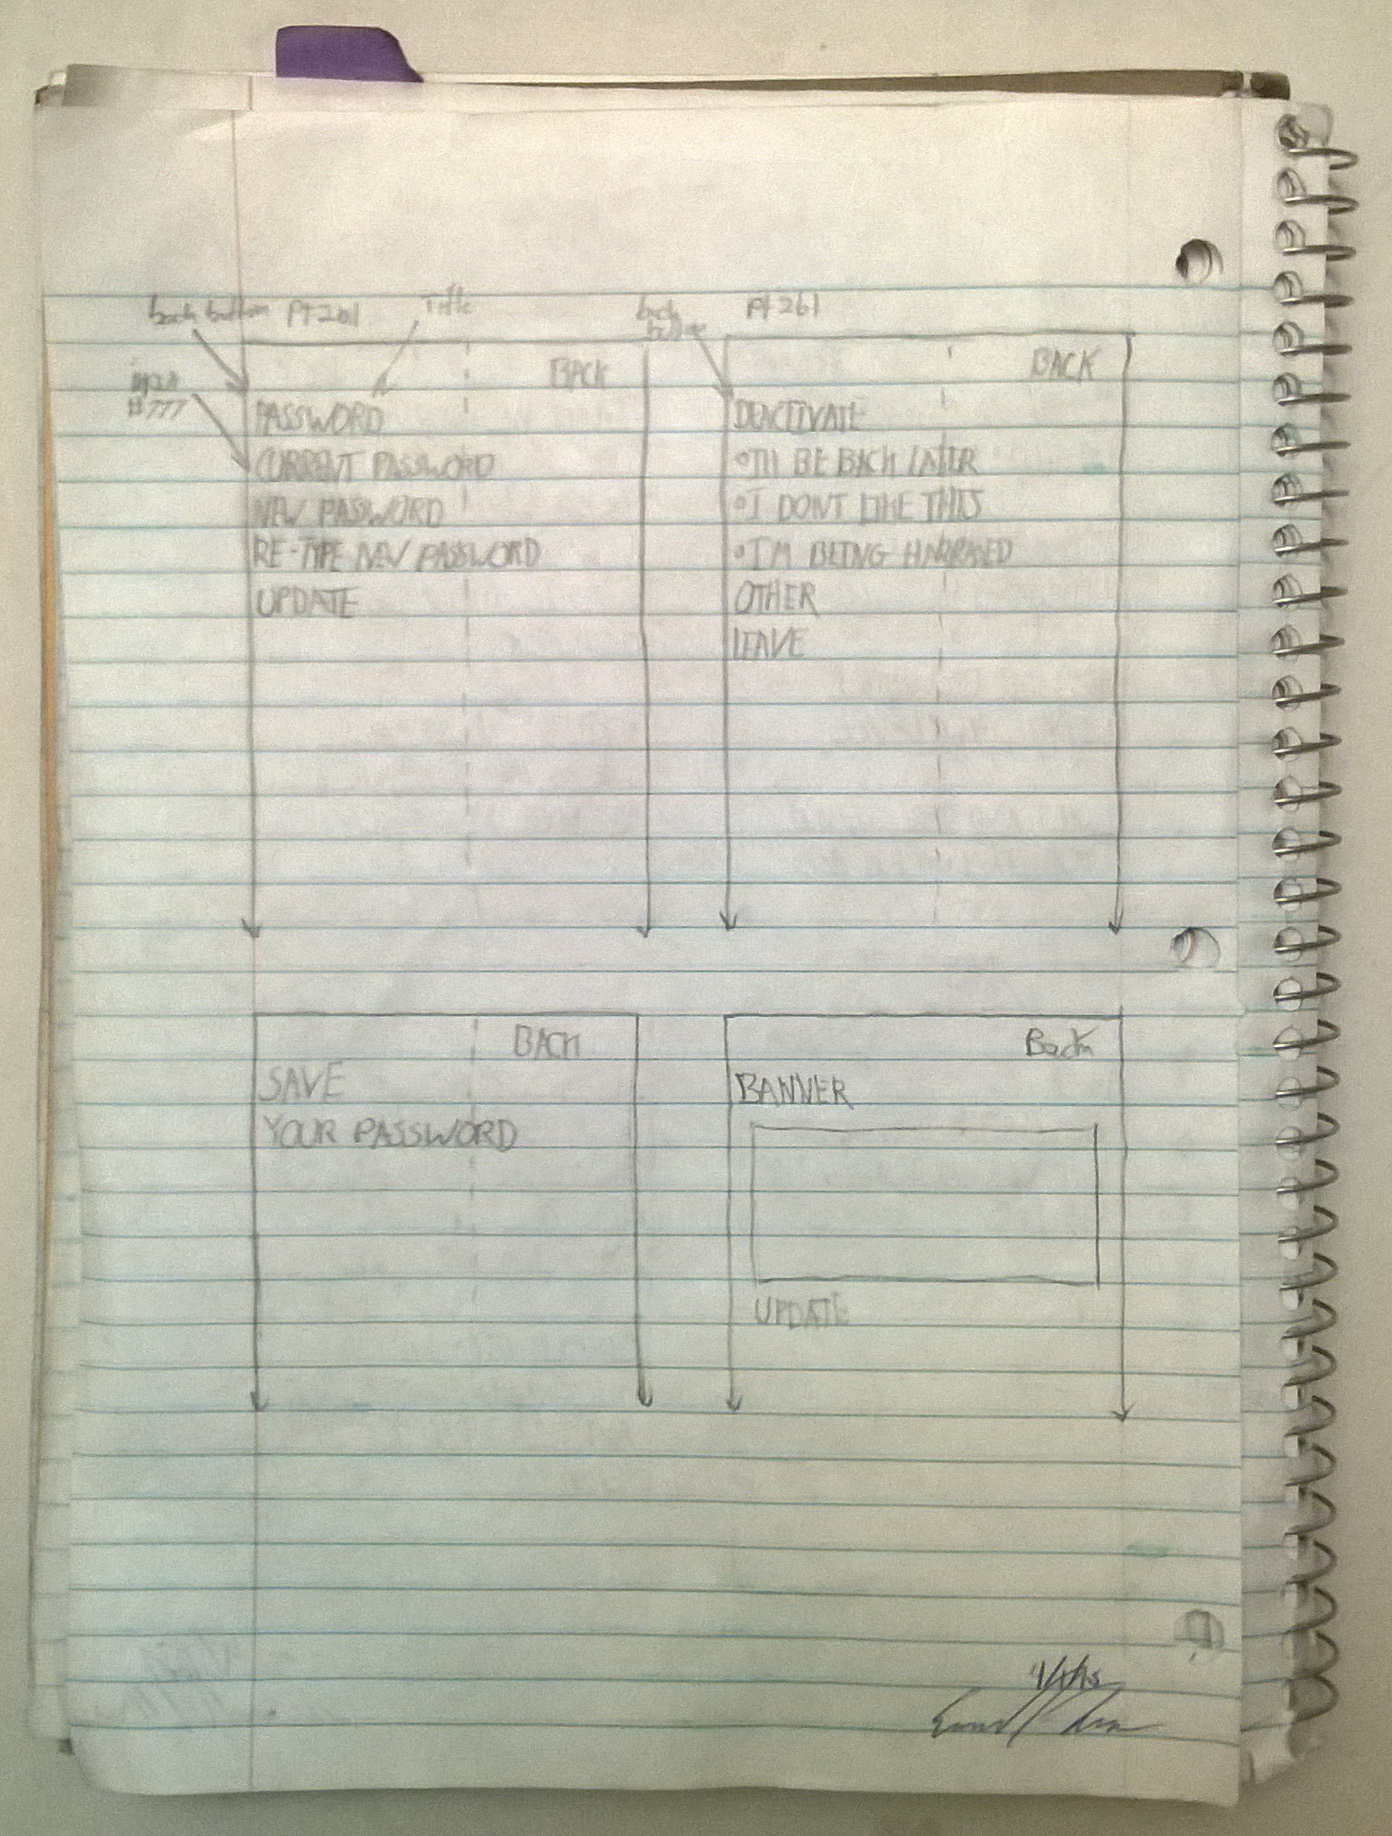 back button Pt 201 Title
back
button
Pt 261
BACK
PASSWORD
CURRENT PASSWORD
NEW PASSWORD
RE-TYPE NEW PASSWORD
UPDATE
BACK
DEACTIVATE
•I'll BE BACK LATER
•I DONT LIKE THIS
•I'M BEING HARRASED
OTHER
LEAVE
BACK
SAVE
YOUR PASSWORD
Back
BANNER
UPDATE